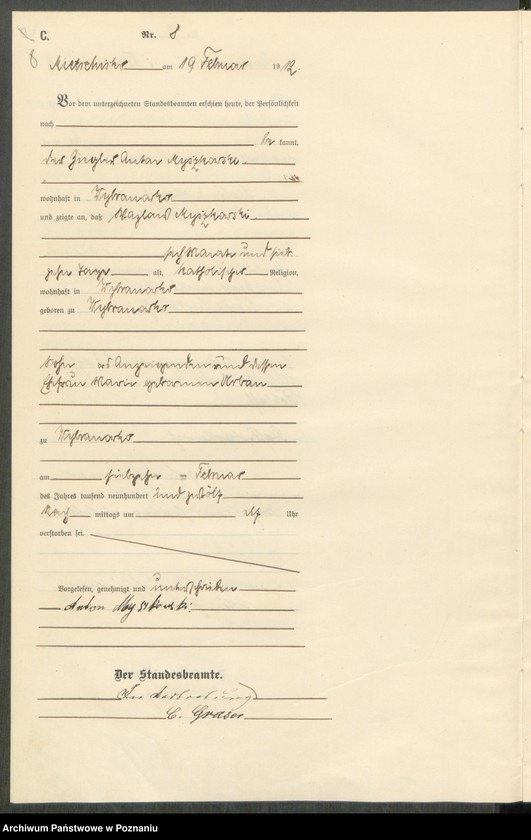 C.
Nr. 8
8
Mietschisko am 19 Februar 1912.
Vor dem unterzeichneten Standesbeamten erschien heute, der Persönlichkeit
nach
be kannt,
der Ziegler Anton Myszkowski
wohnhaft in Wybranowko
und zeigte an, daß Wazlaw Myszkowski
sechs Monate und sieb-
zehn Tage alt, katholischer Religion,
wohnhaft in Wybranowko
geboren zu Wybranowko
Sohn des Anzeigenden und dessen
Ehefrau Marie geborenen Urban
zu Wybranowko
am siebzehn ten Februar
des Jahres tausend neunhundert und zwölf
Nach mittags um Uhr
verstorben sei.
Vorgelesen, genehmigt und unterschrieben
Anton Myszkowski
Der Standesbeamte.
In Vertretung
C. Graser
Archiwum Państwowe w Poznaniu